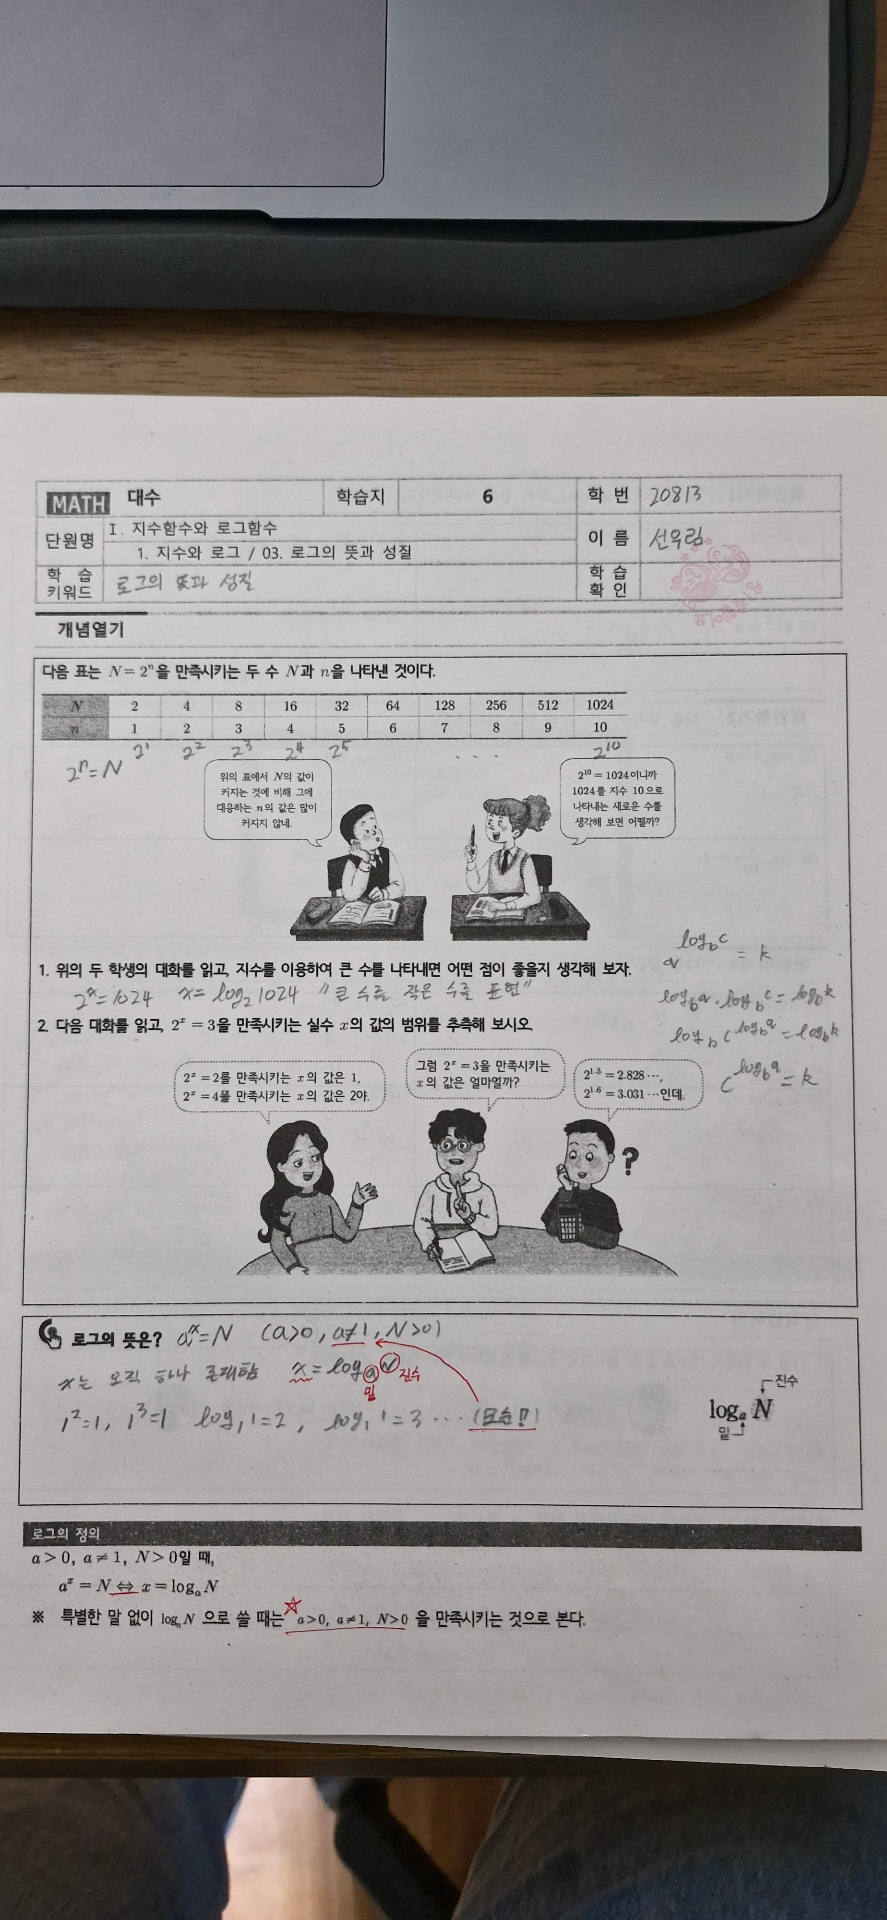 MATH 대수 학습지 6 학 번 20813
단원명 Ⅰ. 지수함수와 로그함수 이 름 선우림
1. 지수와 로그 / 03. 로그의 뜻과 성질
학 습 키워드 로그의 뜻과 성질 학 습 확 인
개념열기
다음 표는 N = 2ⁿ을 만족시키는 두 수 N과 n을 나타낸 것이다.
N 2 4 8 16 32 64 128 256 512 1024
n 1 2 3 4 5 6 7 8 9 10
2ⁿ=N 2¹ 2² 2³ 2⁴ 2⁵ . . . 2¹⁰
위의 표에서 N의 값이
커지는 것에 비해 그에
대응하는 n의 값은 많이
커지지 않네.
2¹⁰ = 1024이니까
1024를 지수 10으로
나타내는 새로운 수를
생각해 보면 어떨까?
1. 위의 두 학생의 대화를 읽고, 지수를 이용하여 큰 수를 나타내면 어떤 점이 좋을지 생각해 보자.
2ˣ=1024 x=log₂1024 "큰 수를 작은 수로 표현"
a^(log_b c) = k
log_b a · log_b c = log_b k
log_b c^(log_b a) = log_b k
c^(log_b a) = k
2. 다음 대화를 읽고, 2ˣ = 3을 만족시키는 실수 x의 값의 범위를 추측해 보시오.
2ˣ = 2를 만족시키는 x의 값은 1,
2ˣ = 4를 만족시키는 x의 값은 2야.
그럼 2ˣ = 3을 만족시키는
x의 값은 얼마일까?
2¹·⁵ = 2.828⋯,
2¹·⁶ = 3.031⋯인데.
?
로그의 뜻은? aˣ=N (a>0, a≠1, N>0)
x는 오직 하나 존재함 x = log_a N 밑 진수
1²=1, 1³=1 log₁1=2, log₁1=3 ⋯ (모순!!)
진수
log_a N
밑
로그의 정의
a > 0, a ≠ 1, N > 0일 때,
aˣ = N ⇔ x = log_a N
※ 특별한 말 없이 log_a N 으로 쓸 때는 ☆ a>0, a≠1, N>0 을 만족시키는 것으로 본다.